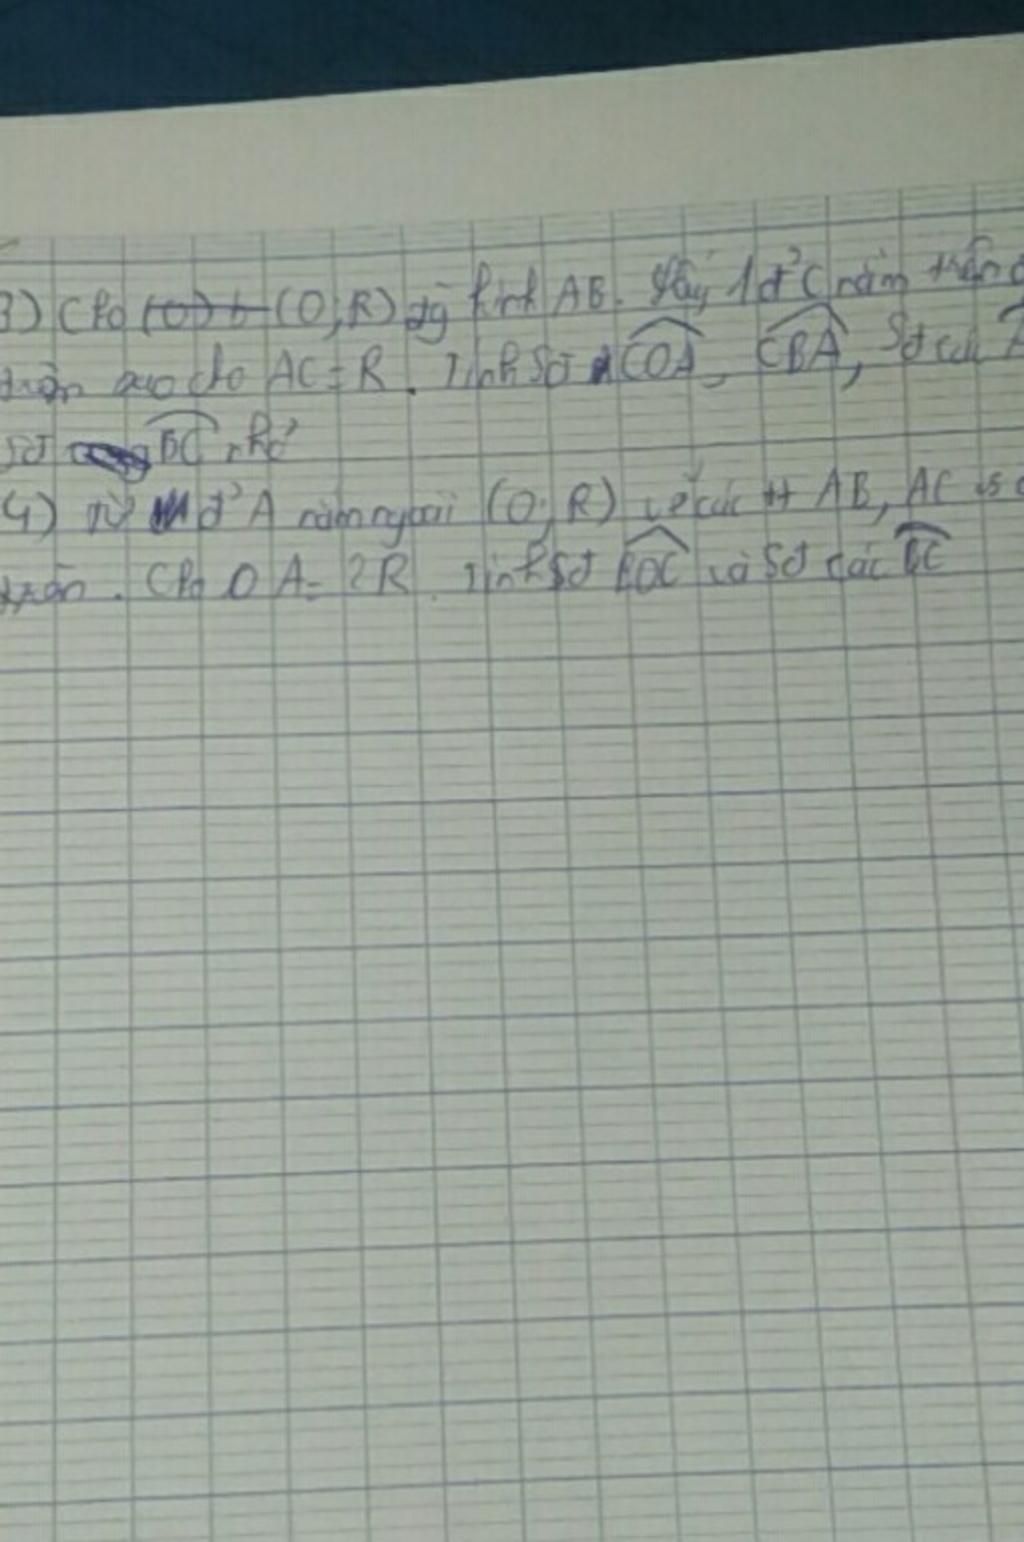 3) Cho (O) b (O;R) đg kính AB. Lấy 1 đ' C nằm trên đ
tròn sao cho AC = R. Tính Sđ COA, CBA, Sđ cu A
Sđ BC nhỏ
4) Từ đ' A nằm ngoài (O;R) vẽ các tt AB, AC
tròn. Cho OA = 2R. Tính Sđ BOC và Sđ các BC